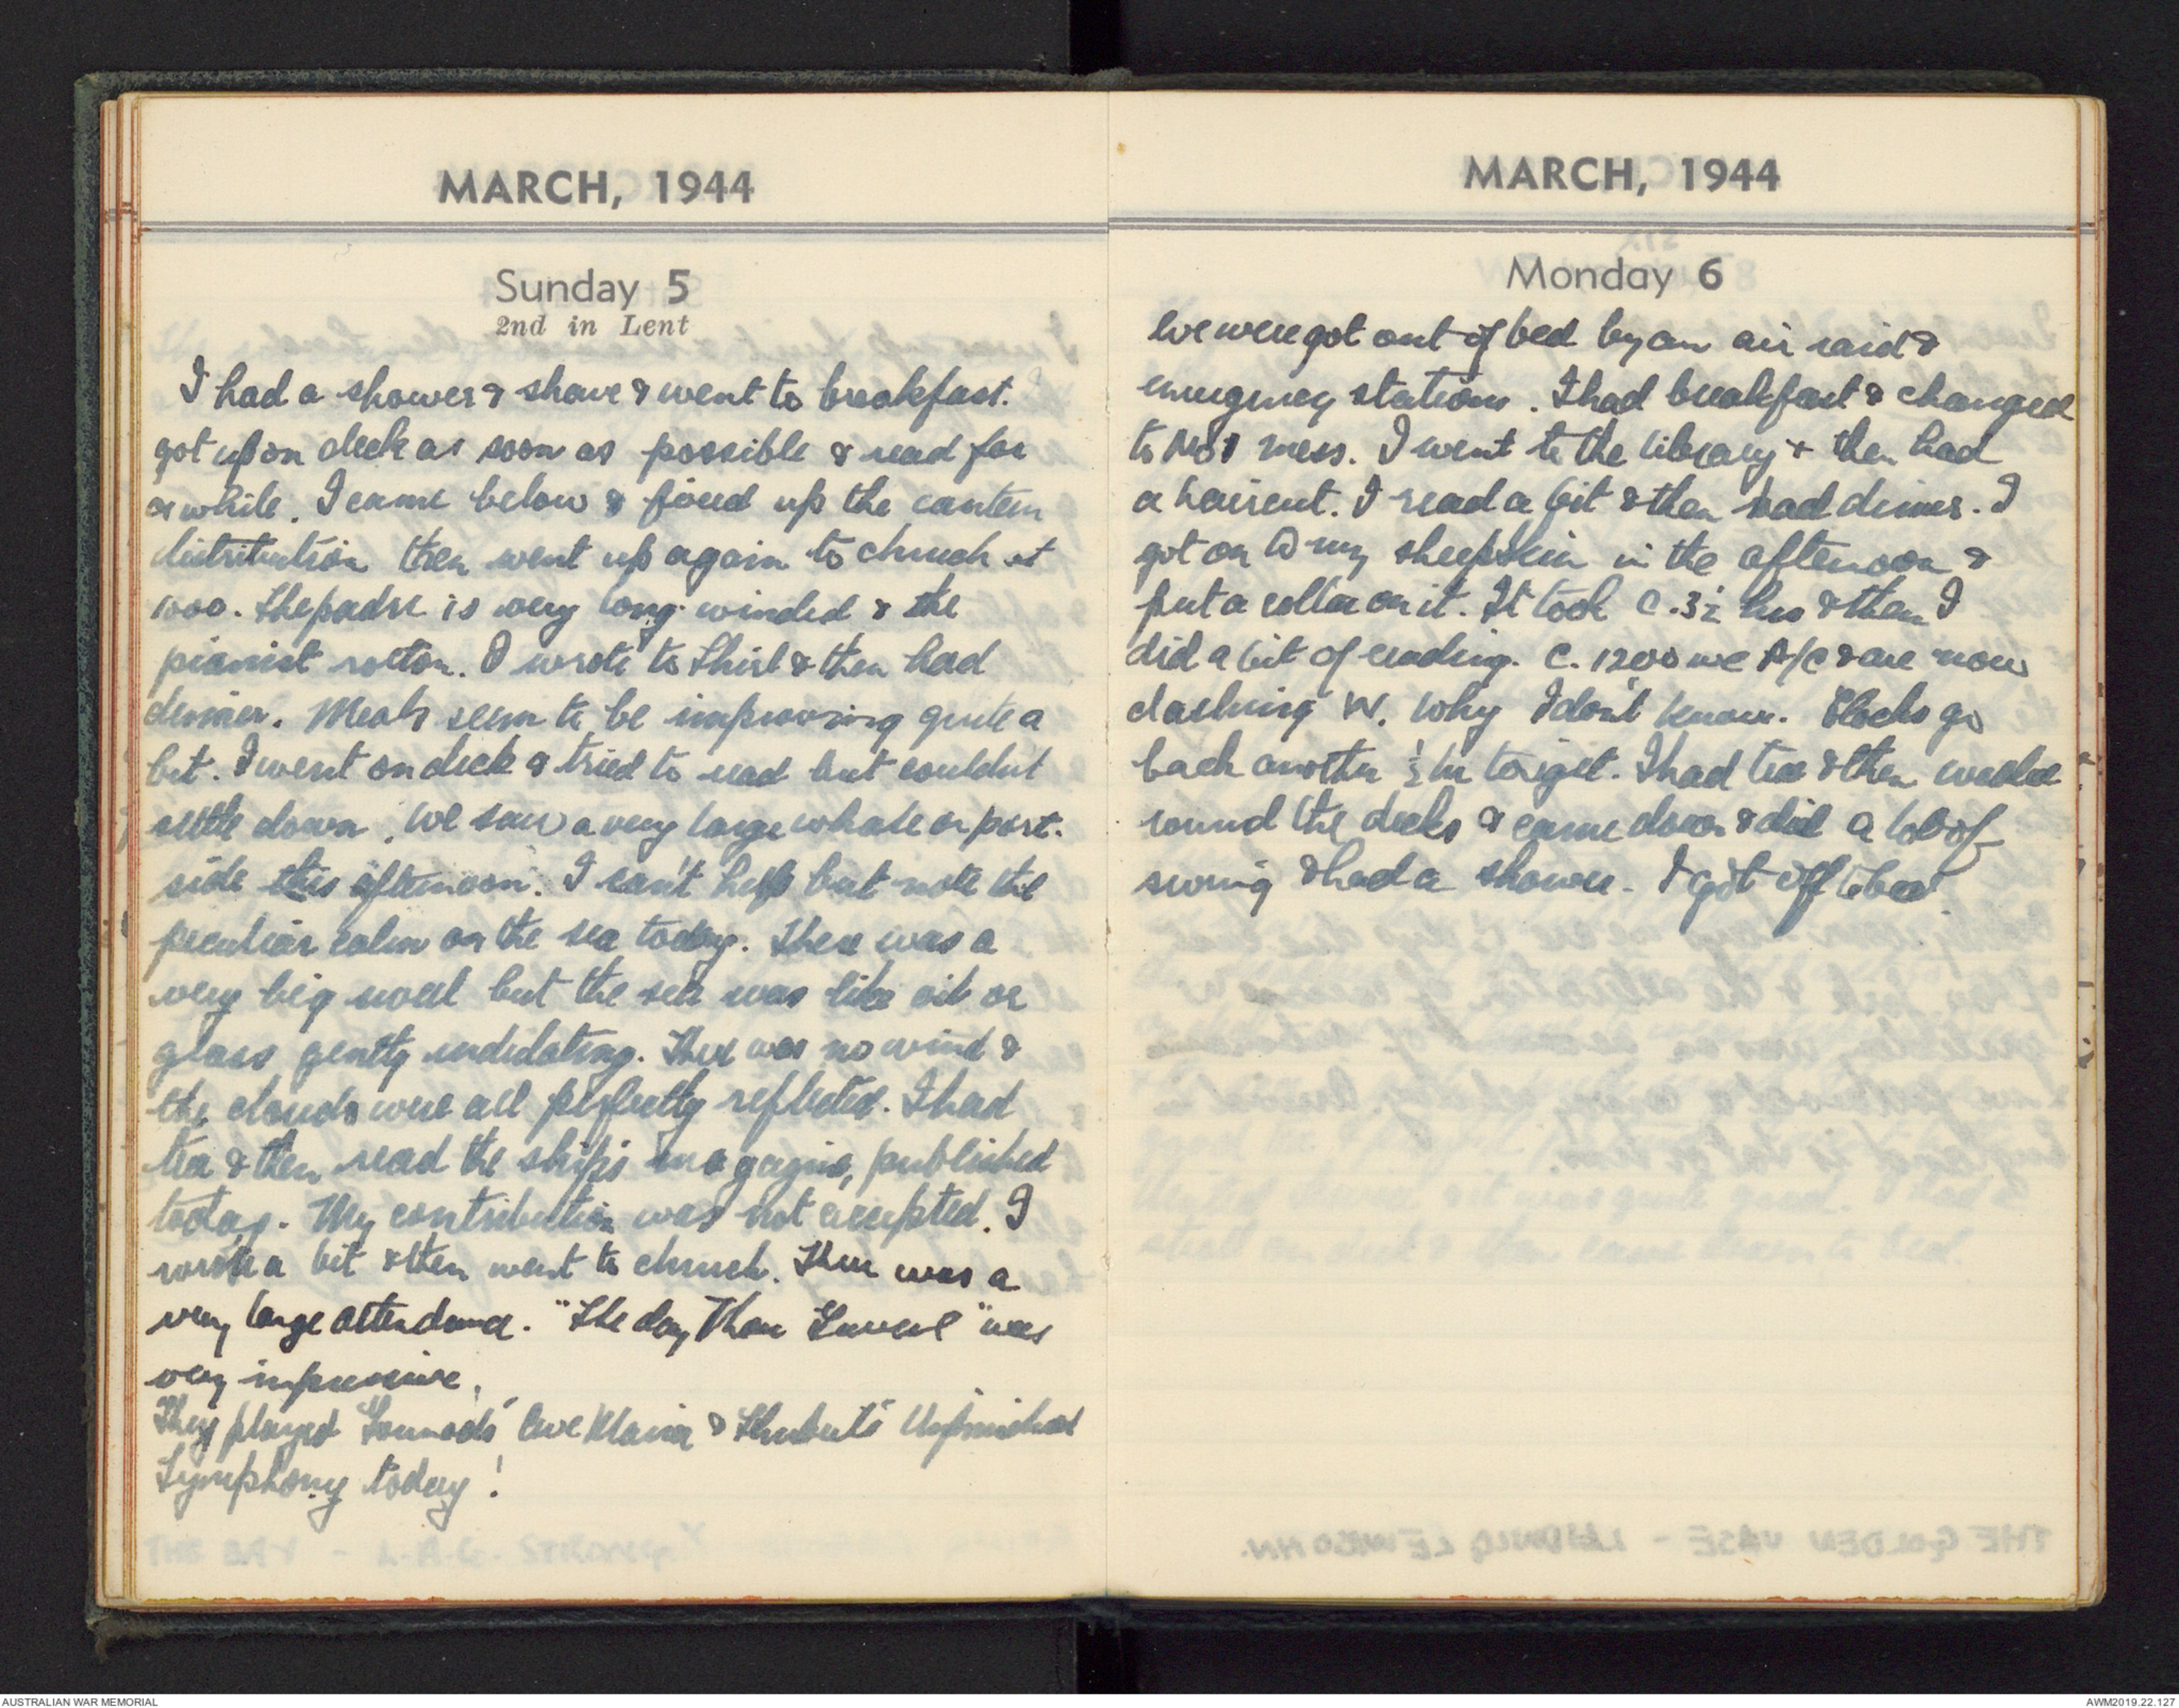 MARCH, 1944
Sunday 5
2nd in Lent
I had a shower & shave & went to breakfast.
got up on deck as soon as possible & read for
a while. I came below & fixed up the canteen
distribution then went up again to church at
1000. The padre is very long-winded & the
pianist rotten. I wrote to Shirl & then had
dinner. Meals seem to be improving quite a
bit. I went on deck & tried to read but couldn't
settle down. We saw a very large whale on port-
side this afternoon. I can't help but note the
peculiar calm on the sea today. There was a
very big swell but the sea was like oil or
glass gently undulating. There was no wind &
the clouds were all perfectly reflected. I had
tea & then read the ship's magazine, published
today. My contribution was not accepted. I
wrote a bit & then went to church. There was a
very large attendance. "The day Thou Gavest" was
very impressive.
They played Gounod's Ave Maria & Shubert's Unfinished
Symphony today!
MARCH, 1944
Monday 6
We were got out of bed by an air raid &
emergency stations. I had breakfast & changed
to No 1 mess. I went to the library & then had
a haircut. I read a bit & then had dinner. I
got on to my sheepskin in the afternoon &
put a collar on it. It took c. 3½ hrs & then I
did a bit of reading. C. 1200 we A/C & are now
dashing W. Why I don't know. Clocks go
back another ½ hr tonight. I had tea & then walked
round the decks & came down & did a lot of
sewing & had a shower. I got off to bed.
AUSTRALIAN WAR MEMORIAL
AWM2019.22.127